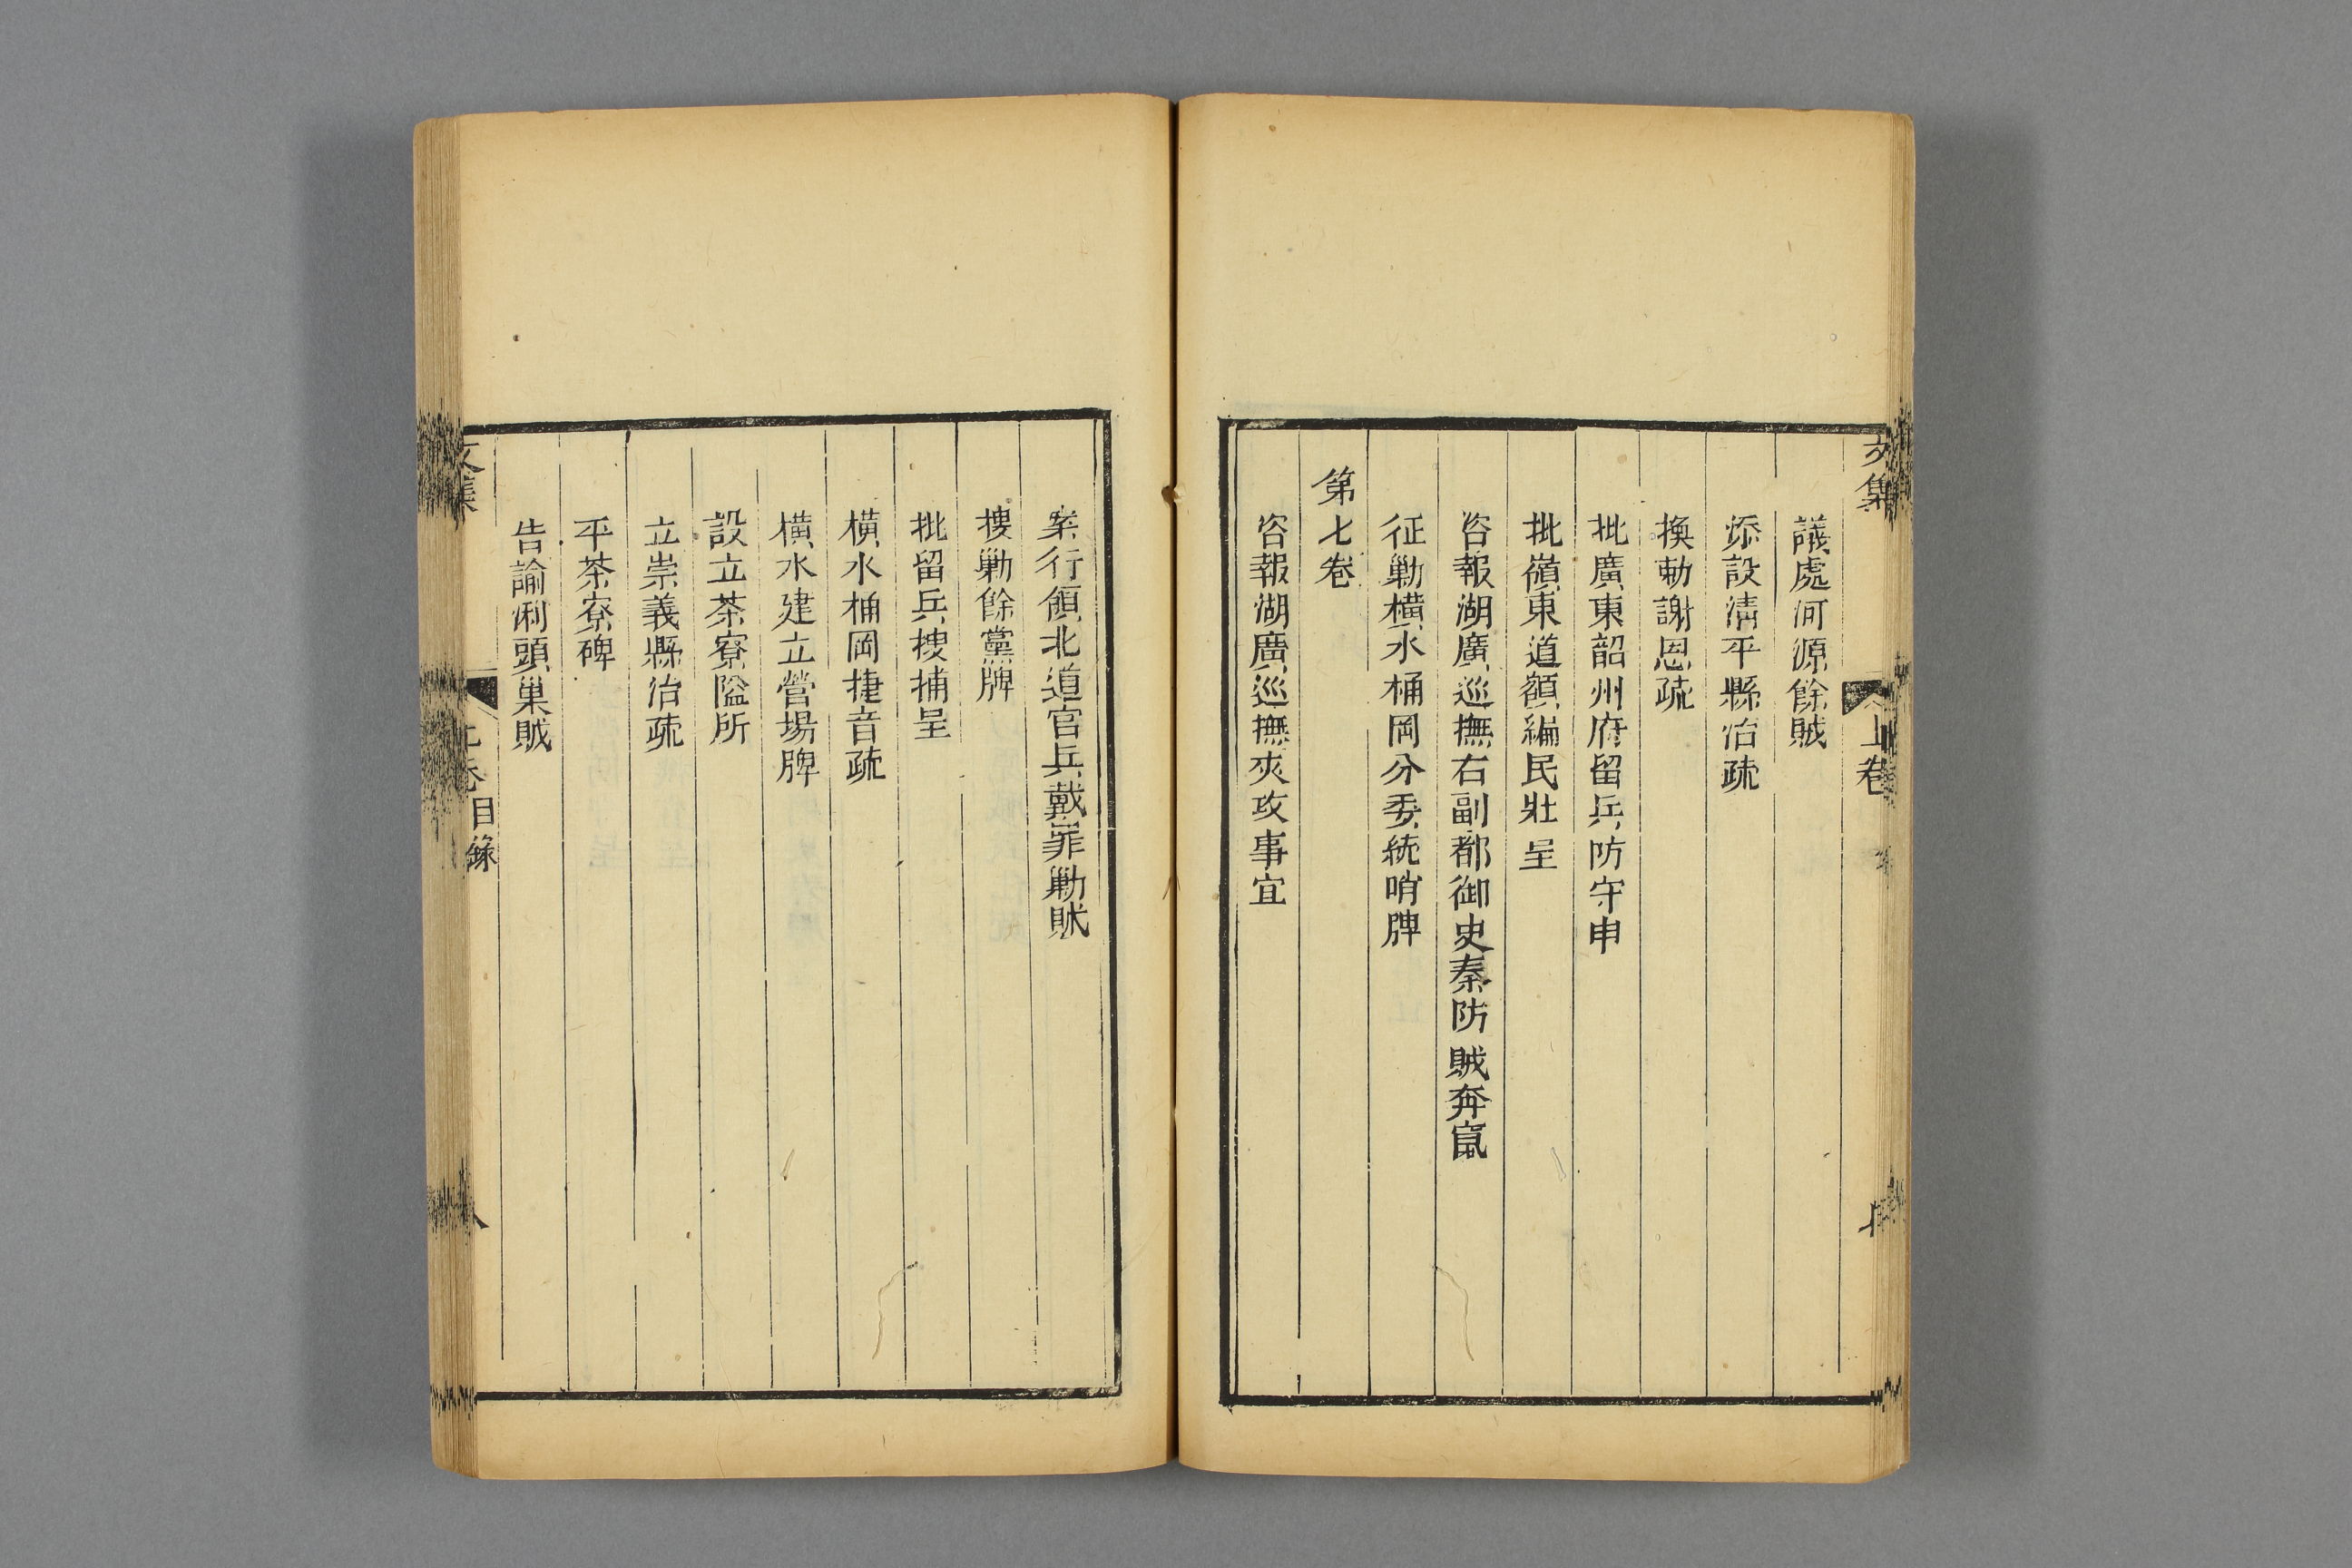 文集
上卷
議處河源餘賊
添設清平縣治疏
換勅謝恩疏
批廣東韶州府留兵防守申
批嶺東道額編民壯呈
咨報湖廣巡撫右副都御史秦防賊奔竄
征勦橫水桶岡分委統哨牌
第七卷
咨報湖廣巡撫夾攻事宜
案行領北道官兵戴罪勦賊
搜勦餘黨牌
批留兵搜捕呈
橫水桶岡捷音疏
橫水建立營塲牌
設立茶寮隘所
立崇義縣治疏
平茶寮碑
告諭浰頭巢賊
文集
上卷目錄
八